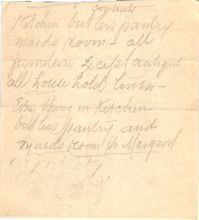 Kitchen butlers pantry
maids room - all
furniture except antiques
all house hold linen -
Every thing in Kitchen
butlers pantry and
maids room to Margaret